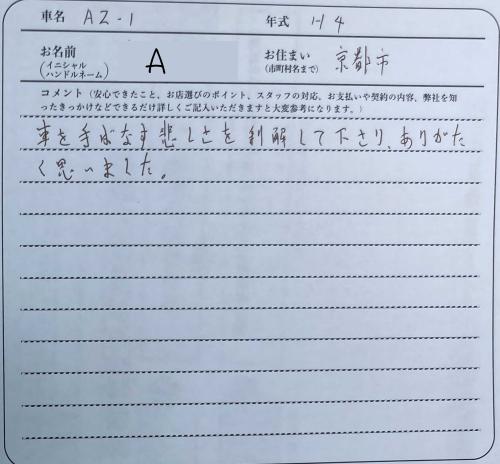 車名 AZ-1 年式 H4
お名前 (イニシャル ハンドルネーム) A お住まい (市町村名まで) 京都市
コメント(安心できたこと、お店選びのポイント、スタッフの対応、お支払いや契約の内容、弊社を知
ったきっかけなどできるだけ詳しくご記入いただきますと大変参考になります。)
車を手ばなす悲しさを利解して下さり、ありがた
く思いました。